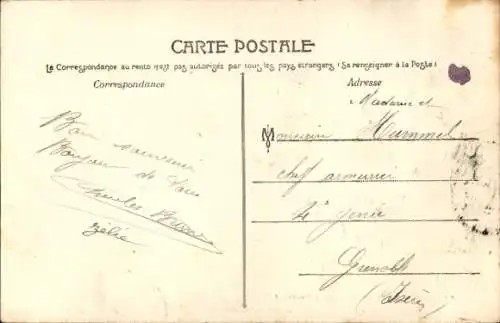 CARTE POSTALE
La Correspondance au recto n'est pas autorisée par tous les pays étrangers (Se renseigner à la Poste)
Correspondance
Adresse
Bon souvenir
Bonjour de
Zélie
Madame et
Monsieur Hummel
chef armurier
4e génie
Grenoble
(Isère)